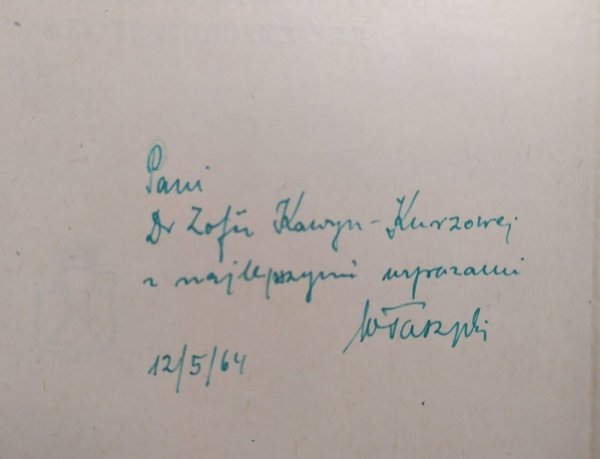 Pani
Dr Zofii Kawyn-Kurzowej
z najlepszymi wyrazami
12/5/64